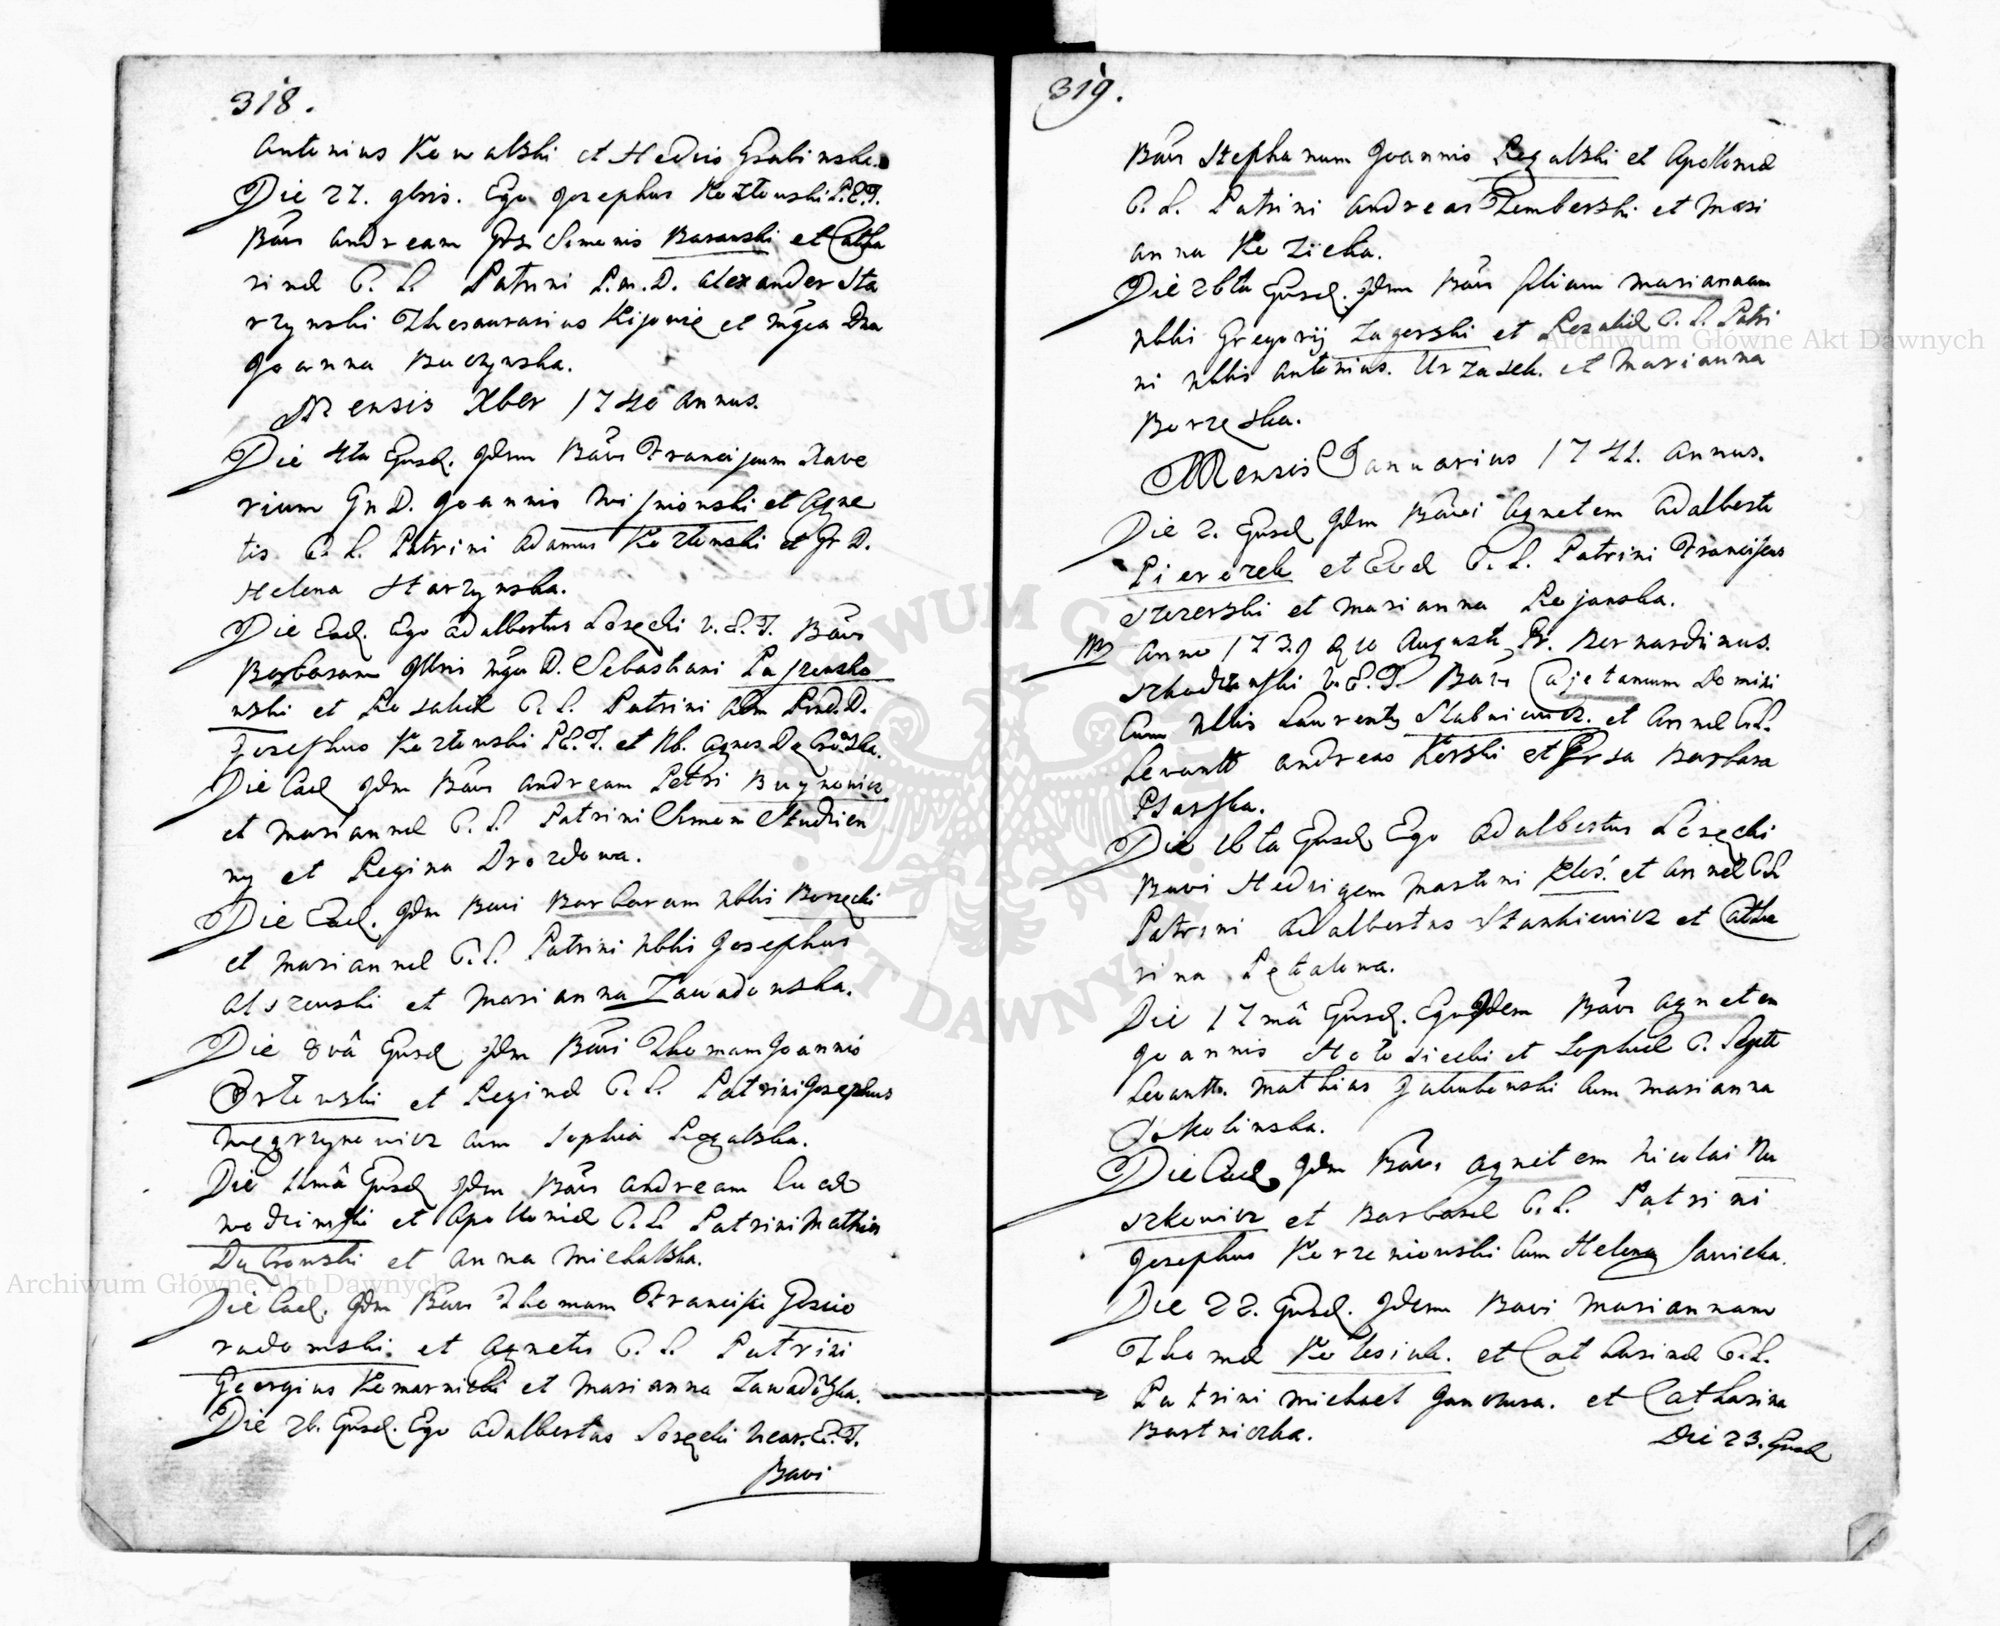 318.
Antonius Kowalski et Hedvis Grabinska.
Die 27. 9bris. Ego Josephus Kozłowski P.E.T.
Bavi Andream Simonis Baranski et Catha
rinæ C. L. Patrini P.m.D. Alexander Sta
rzynski Thesaurarius Kijoviæ et Mgca Dna
Joanna Buczynska.
Mensis Xber 1740 Annus.
Die 4ta Ejusd. Idem Bavi Franciscum Xave
rium Gn D. Joannis Wisniowski et Agne
tis C. L. Patrini Adamus Kozłowski et Gr D.
Helena Starzynska.
Die Ead. Ego Adalbertus Łosęcki V.E.T. Bavi
Barbaram D. Sebastiani
wski et Rosaliæ C. L. Patrini D.
Josephus Kozłowski P.E.T. et Nb. Agnes Dąbroska.
Die Ead Idem Bavi Andream Petri Buynowicz
et Mariannæ C. L. Patrini Simeon Studzien
ny et Regina Drozdowa.
Die Ead. Idm Bavi Barbaram Nblis Borzęcki
et Mariannæ C. L. Patrini Nblis Josephus
Olszewski et Marianna Zawadowska.
Die 8vâ Ejusd Idm Bavi Thomam Joannis
Orłowski et Reginæ C. L. Patrini Josephus
Węgrzynowicz cum Sophia Rogalska.
Die 11mâ Ejusd Idm Bavi Andream Lucæ
Wodzinski et Apolloniæ C. L. Patrini Mathias
Dąbrowski et Anna Michalska.
Die Ead. Idm Bavi Thomam Francisci Goscio
radowski et Agnetis C. L. Patrini
Georgius Komarnicki et Marianna Zawadzka.
Die 26. Ejusd. Ego Adalbertus Łosęcki Vicar. E. T.
Bavi
319.
Bavi Stephanum Joannis Rogalski et Apolloniæ
C. L. Patrini Andreas Zemberski et Mari
anna Kozicka.
Die 26ta Ejusd. Idem Bavi filiam Mariannam
Nblis Gregorij Zagorski et Rozaliæ C. L. Patri
ni Nblis Antonius. Urzasek. et Marianna
Borzęska.
Mensis Januarius 1741. Annus.
Die 2. Ejusd Idm Bavi Agnetem Adalberti
Pierozek et Evæ C. L. Patrini Franciscus
Szczerski et Marianna Rojanska.
Anno 1739 10 Augusti Bernardinus.
V.E.T. Bavi Cajetanum Domini
cum Nblis Laurentij Słabniewicz. et Annæ C.L.
Levantt Andreas Kerski et Barbara
Ptaszka.
Die 16ta Ejusd Ego Adalbertus Łosęcki
Bavi Hedvigem Martini Kłos. et Annæ C.L.
Patrini Adalbertus Stankiewicz et Catha
rina Pętalowa.
Die 17mâ Ejusd. Ego Idem Bavi Agnetem
Joannis Mołosiecki et Sophiæ C. L.
Levantt. Mathias Jakubowski Cum Marianna
Sokolinska.
Die Ead Idm Bavi Agnetem Nicolai Ru
szkowicz et Barbaræ C. L. Patrini
Josephus Korzeniowski Cum Helena Sawicka.
Die 22. Ejusd. Idem Bavi Mariannam
Thomæ Kolesiuk. et Catharinæ C. L.
Patrini Michael et Catharina
Bartniczka.
Die 23. Ejusd
Archiwum Główne Akt Dawnych
Archiwum Główne Akt Dawnych